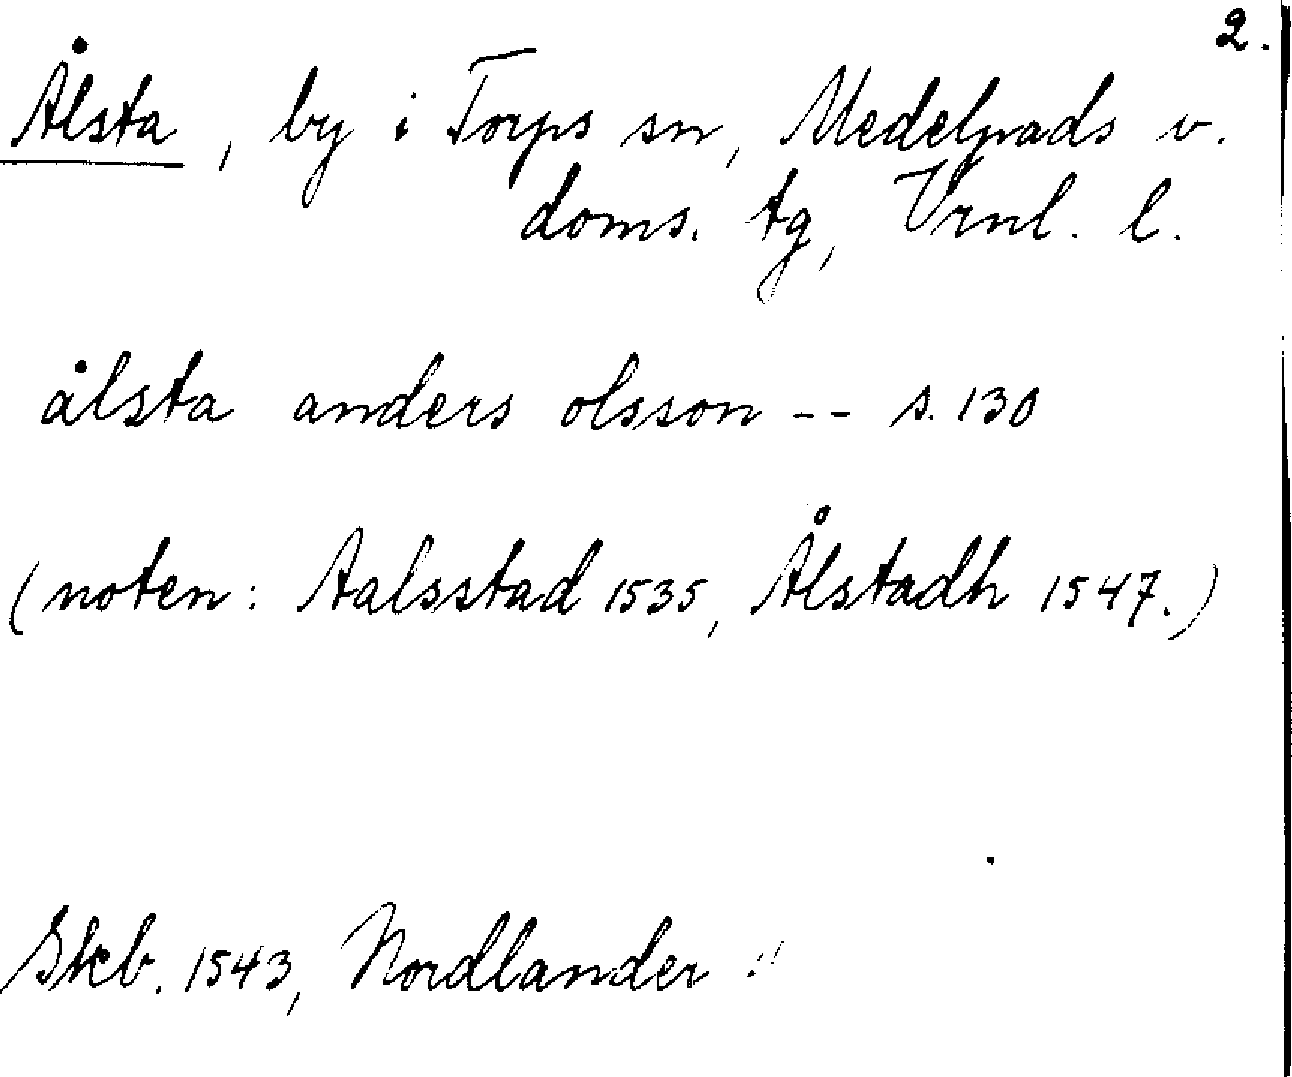 2.
Ålsta, by i Torps sn, Medelpads v.
doms. tg, Vrnl. l.
ålsta anders olsson -- s. 130
(noten: Aalsstad 1535, Ålstadh 1547.)
Skb. 1543, Nordlander